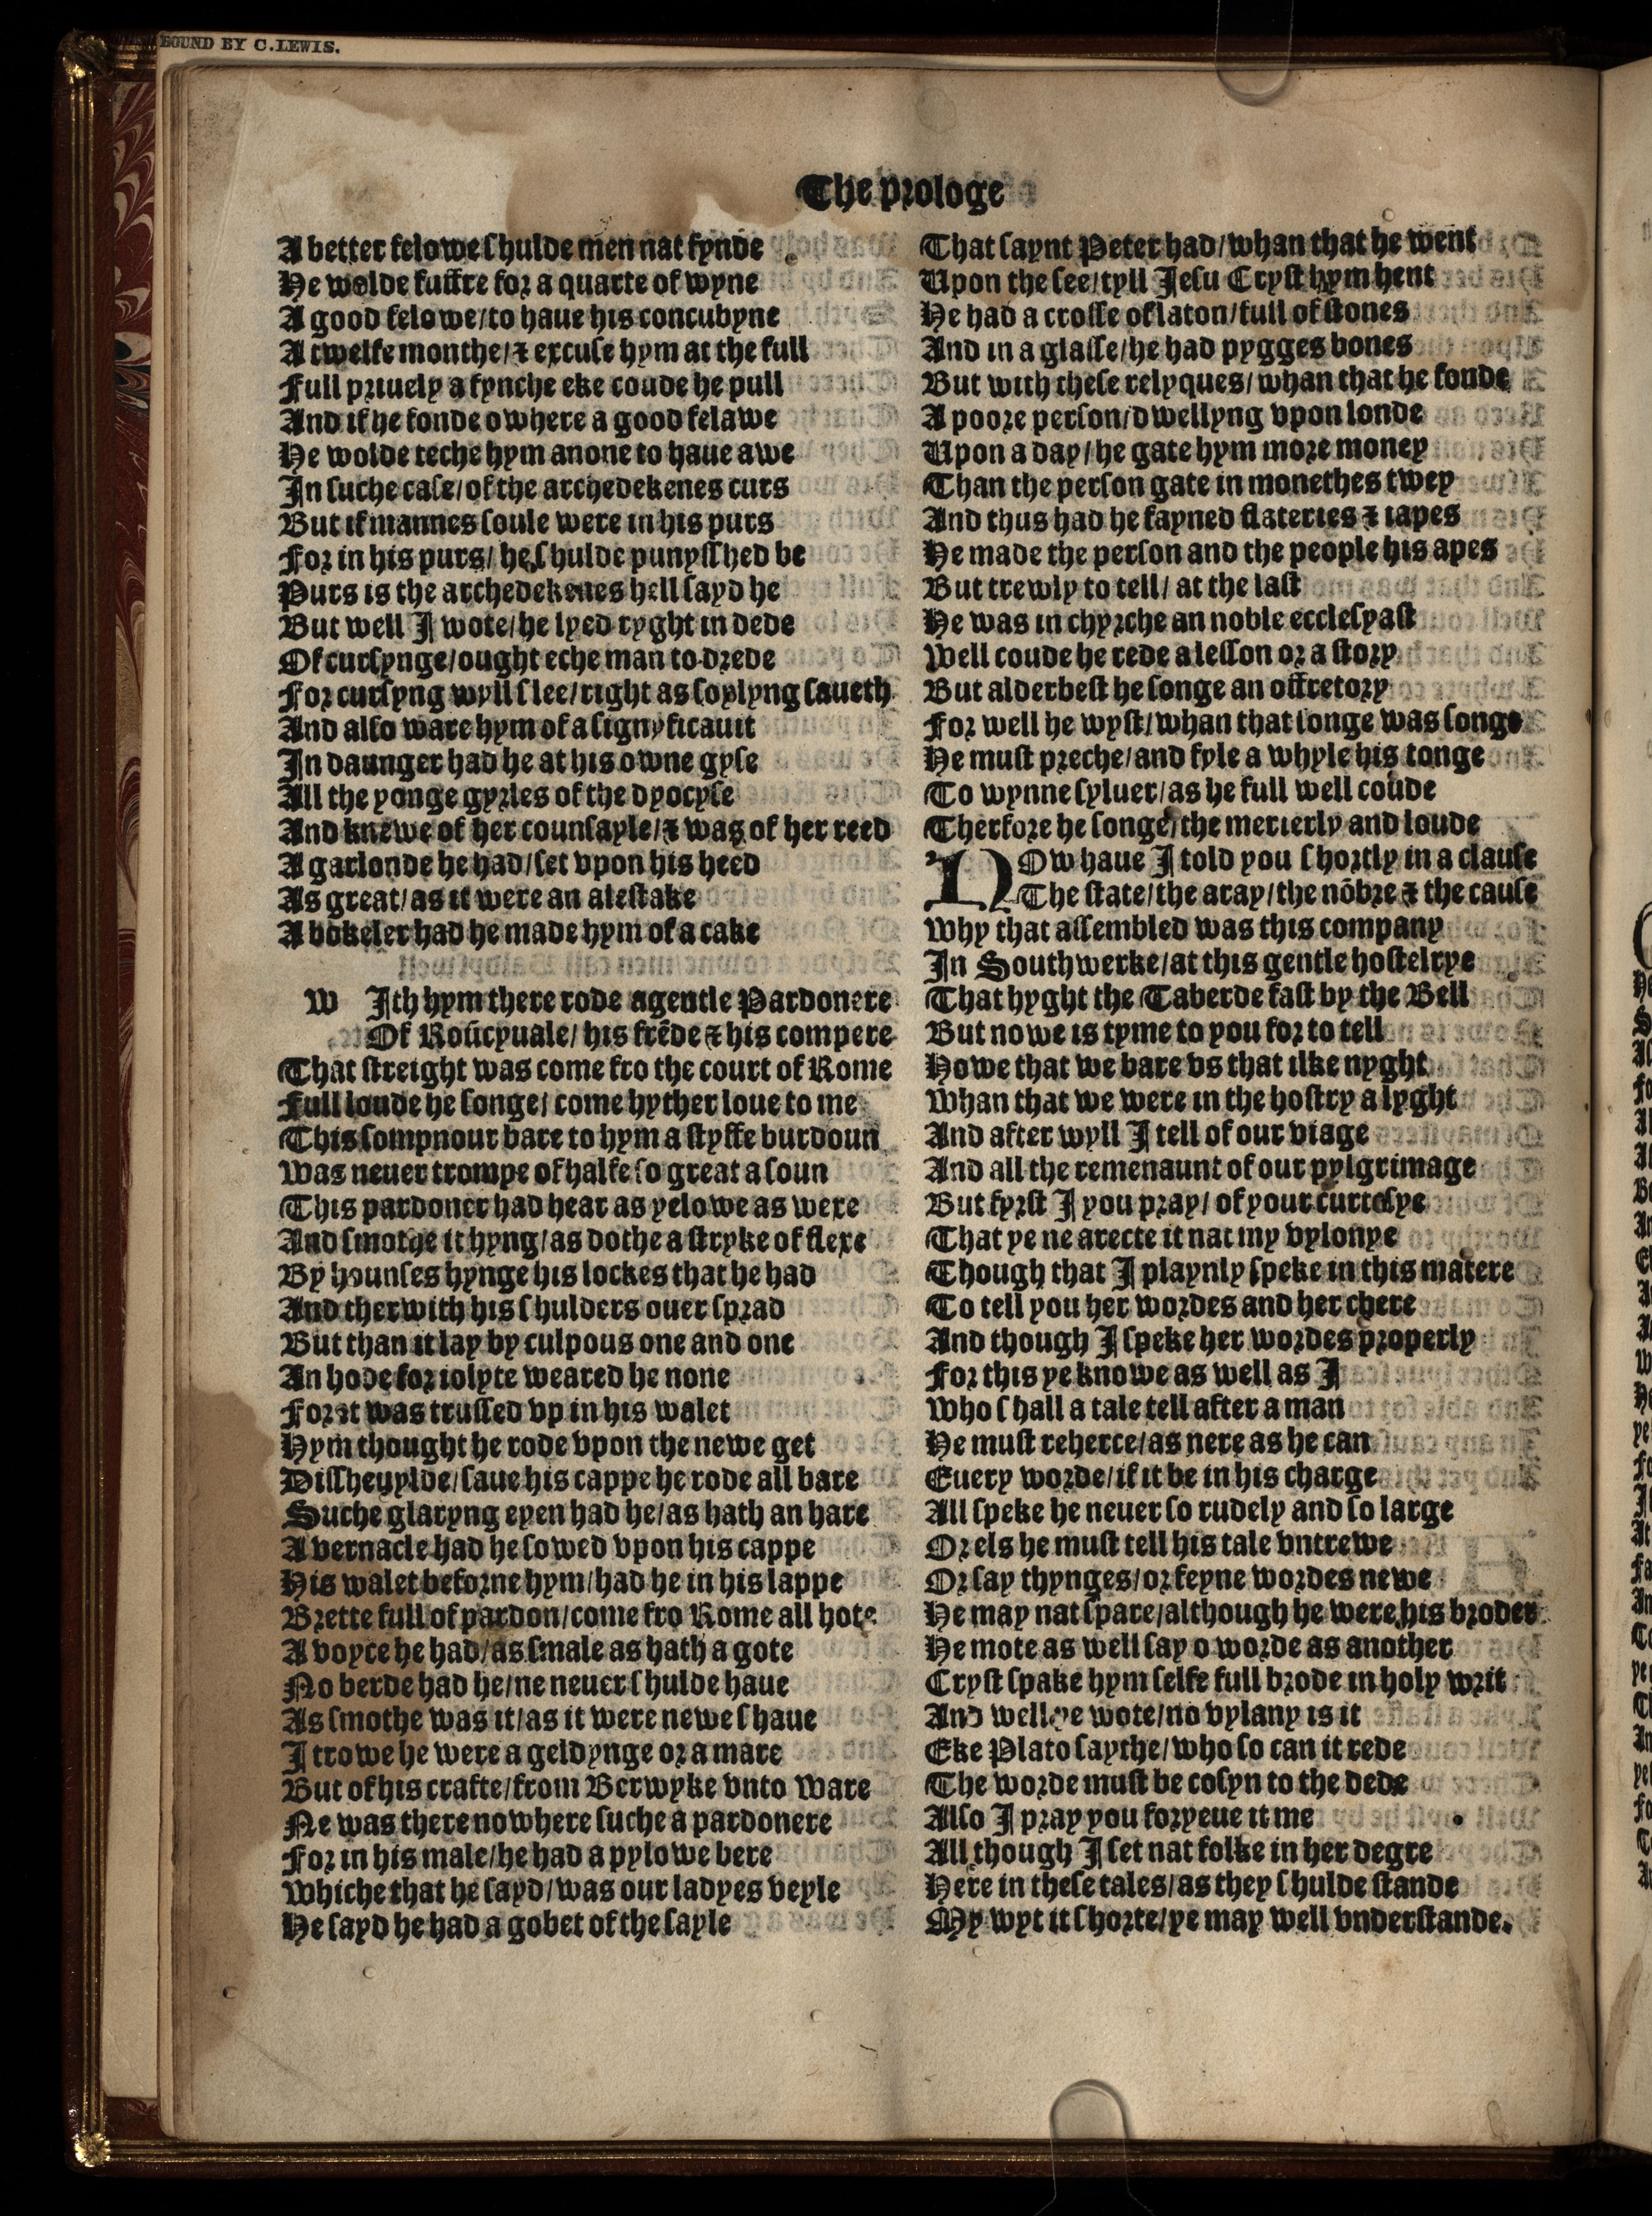 BOUND BY C.LEWIS.
The prologe
A better felowe shulde men nat fynde
He wolde suffre for a quarte of wyne
A good felowe/to haue his concubyne
A twelfe monthe/⁊ excuse hym at the full
Full priuely a fynche eke coude he pull
And if he fonde owhere a good felawe
He wolde teche hym anone to haue awe
In suche case/of the archedekenes curs
But if mannes soule were in his purs
For in his purs/ he shulde punysshed be
Purs is the archedekenes hell sayd he
But well I wote/he lyed ryght in dede
Of cursynge/ought eche man to drede
For cursyng wyll slee/right as soylyng saueth
And also ware hym of a significauit
In daunger had he at his owne gyse
All the yonge gyrles of the dyocyse
And knewe of her counsayle/⁊ was of her reed
A garlonde he had/set vpon his heed
As great/as it were an alestake
A bokeler had he made hym of a cake
W Ith hym there rode agentle Pardonere
Of Roũcyuale/ his frẽde ⁊ his compere
That streight was come fro the court of Rome
Full loude he songe/ come hyther loue to me
This sompnour bare to hym a styffe burdoun
Was neuer trompe of halfe so great a soun
This pardoner had hear as yelowe as wexe
And smothe it hyng/as dothe a stryke of flexe
By hounses hynge his lockes that he had
And therwith his shulders ouer sprad
But than it lay by culpous one and one
An hode for iolyte weared he none
For it was trussed vp in his walet
Hym thought he rode vpon the newe get
Dissheuylde/saue his cappe he rode all bare
Suche glaryng eyen had he/as hath an hare
A vernacle had he sowed vpon his cappe
His walet beforne hym/had he in his lappe
Brette full of pardon/come fro Rome all hote
A voyce he had/as smale as hath a gote
No berde had he/ne neuer shulde haue
As smothe was it/as it were newe shaue
I trowe he were a geldynge or a mare
But of his crafte/from Berwyke vnto Ware
Ne was there nowhere suche a pardonere
For in his male/he had a pylowe bere
Whiche that he sayd/was our ladyes veyle
He sayd he had a gobet of the sayle
That saynt Peter had/whan that he went
Upon the see/tyll Jesu Cryst hym hent
He had a crosse of laton/full of stones
And in a glasse/he had pygges bones
But with these relyques/whan that he fonde
A poore person/dwellyng vpon londe
Upon a day/he gate hym more money
Than the person gate in monethes twey
And thus had he fayned flateries ⁊ iapes
He made the person and the people his apes
But trewly to tell/ at the last
He was in chyrche an noble ecclesyast
Well coude he rede a lesson or a story
But alderbest he songe an offretory
For well he wyst/whan that songe was songe
He must preche/and fyle a whyle his tonge
To wynne syluer/as he full well coude
Therfore he songe/the merierly and loude
NOw haue I told you shortly in a clause
The state/the aray/the nõbre ⁊ the cause
Why that assembled was this company
In Southwerke/at this gentle hostelrye
That hyght the Taberde fast by the Bell
But nowe is tyme to you for to tell
Howe that we bare vs that ilke nyght
Whan that we were in the hostry alyght
And after wyll I tell of our viage
And all the remenaunt of our pylgrimage
But fyrst I you pray/ of your curtesye
That ye ne arecte it nat my vylonye
Though that I playnly speke in this matere
To tell you her wordes and her chere
And though I speke her wordes properly
For this ye knowe as well as I
Who shall a tale tell after a man
He must reherce/as nere as he can
Euery worde/if it be in his charge
All speke he neuer so rudely and so large
Or els he must tell his tale vntrewe
Or say thynges/or feyne wordes newe
He may nat spare/although he were his broder
He mote as well say o worde as another
Cryst spake hym selfe full brode in holy writ
And well ye wote/no vylany is it
Eke Plato saythe/who so can it rede
The worde must be cosyn to the dede
Also I pray you foryeue it me
All though I set nat folke in her degre
Here in these tales/as they shulde stande
My wyt it shorte/ye may well vnderstande.